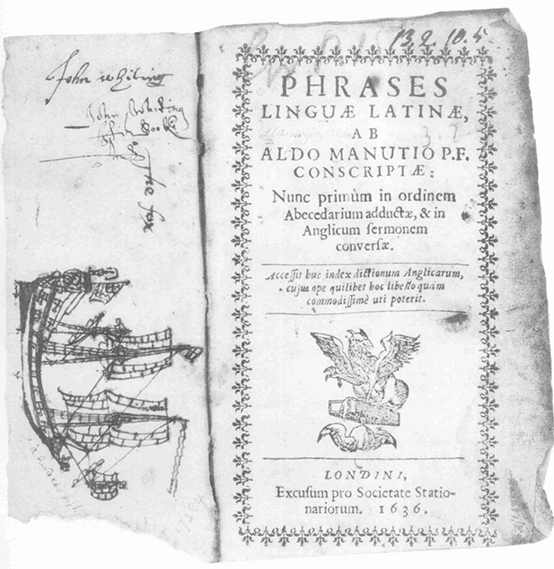 John whiting
John
his Booke
the fox
132.10.5
PHRASES
LINGUÆ LATINÆ,
AB
ALDO MANUTIO P.F.
CONSCRIPTÆ:
Nunc primùm in ordinem
Abecedarium adductæ, & in
Anglicum sermonem
conversæ.
Accessit huc index dictionum Anglicarum,
cujus ope quilibet hoc libello quàm
commodissimè uti poterit.
LONDINI,
Excusum pro Societate Statio-
nariorum. 1636.